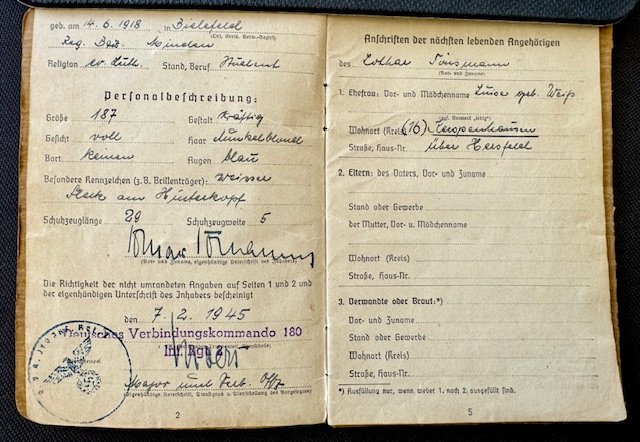 geb. am 14.6.1918, in Bielefeld
(Ort, Kreis, Verw.-Bezirk)
Reg. Bez. Minden
Religion ev. Luth. Stand, Beruf Student
Personalbeschreibung:
Größe 187 Gestalt kräftig
Gesicht voll Haar dunkelblond
Bart keinen Augen blau
Besondere Kennzeichen (z.B. Brillenträger): weisser
Fleck am Hinterkopf
Schuhzeuglänge 29 Schuhzeugweite 5
(Vor- und Zuname, eigenhändige Unterschrift des Inhabers)
Die Richtigkeit der nicht umrandeten Angaben auf Seiten 1 und 2 und
der eigenhändigen Unterschrift des Inhabers bescheinigt
den 7.2.1945
Deutsches Verbindungskommando 180
Inf. Rgt
Major und Verb. Offz.
(Eigenhändige Unterschrift, Dienstgrad u. Dienststellung des Vorgesetzten)
2
Anschriften der nächsten lebenden Angehörigen
des Lothar
(Vor- und Zuname)
1. Ehefrau: Vor- und Mädchenname Luise geb. Weiß
(ggf. Vermerk „ledig")
Wohnort (Kreis) (16) Kerspenhausen
Straße, Haus-Nr. über Hersfeld
2. Eltern: des Vaters, Vor- und Zuname
Stand oder Gewerbe
der Mutter, Vor- u. Mädchenname
Wohnort (Kreis)
Straße, Haus-Nr.
3. Verwandte oder Braut:*)
Vor- und Zuname
Stand oder Gewerbe
Wohnort (Kreis)
Straße, Haus-Nr.
*) Ausfüllung nur, wenn weder 1. noch 2. ausgefüllt sind.
5